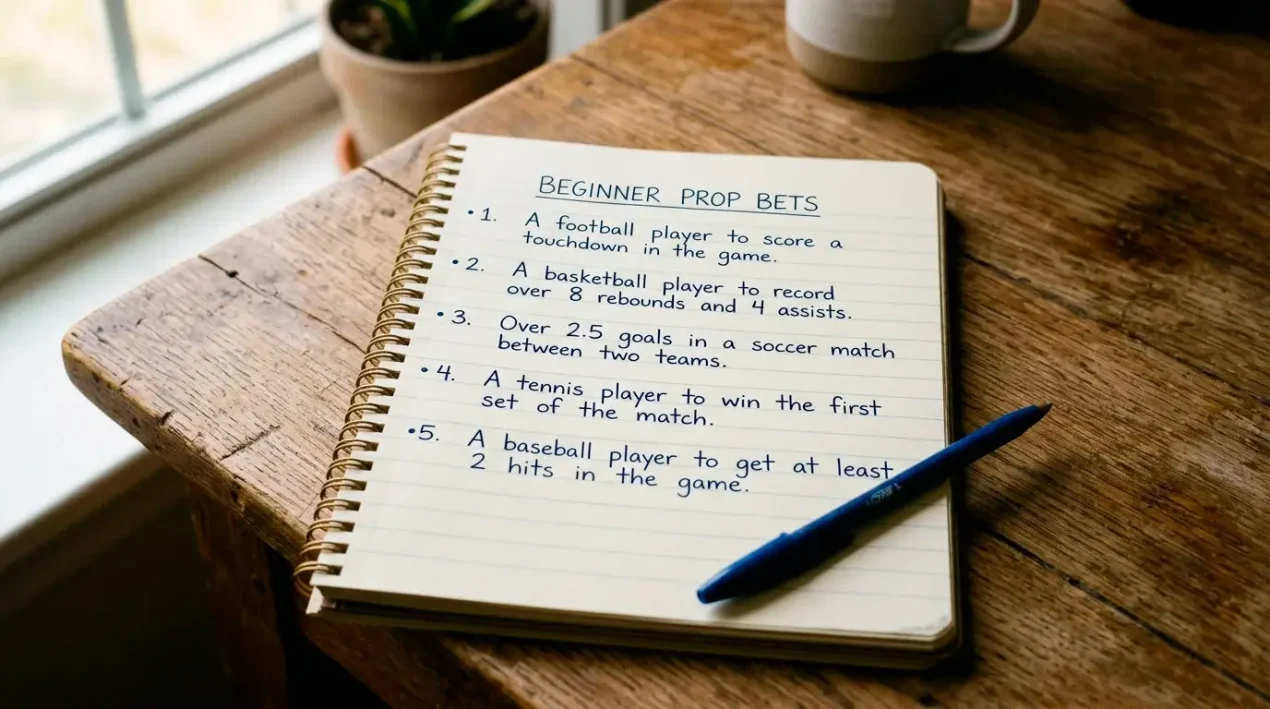 BEGINNER PROP BETS
• 1. A football player to score a
touchdown in the game.
• 2. A basketball player to record
over 8 rebounds and 4 assists.
• 3. Over 2.5 goals in a soccer match
between two teams.
• 4. A tennis player to win the first
set of the match.
• 5. A baseball player to get at least
2 hits in the game.